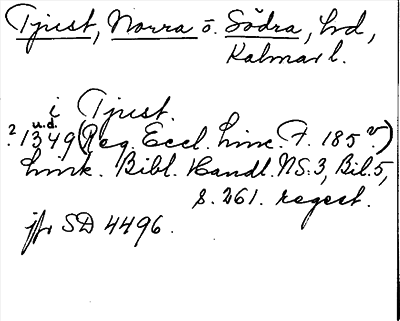 Tjust, Norra o. Södra, hd,
Kalmar l.
i Tjust.
u.d.
? 1349 (Reg. Eccl. Linc. F. 185 v.)
Link. Bibl. Handl. NS. 3, Bil. 5,
s. 261. regest.
jfr SD 4496.